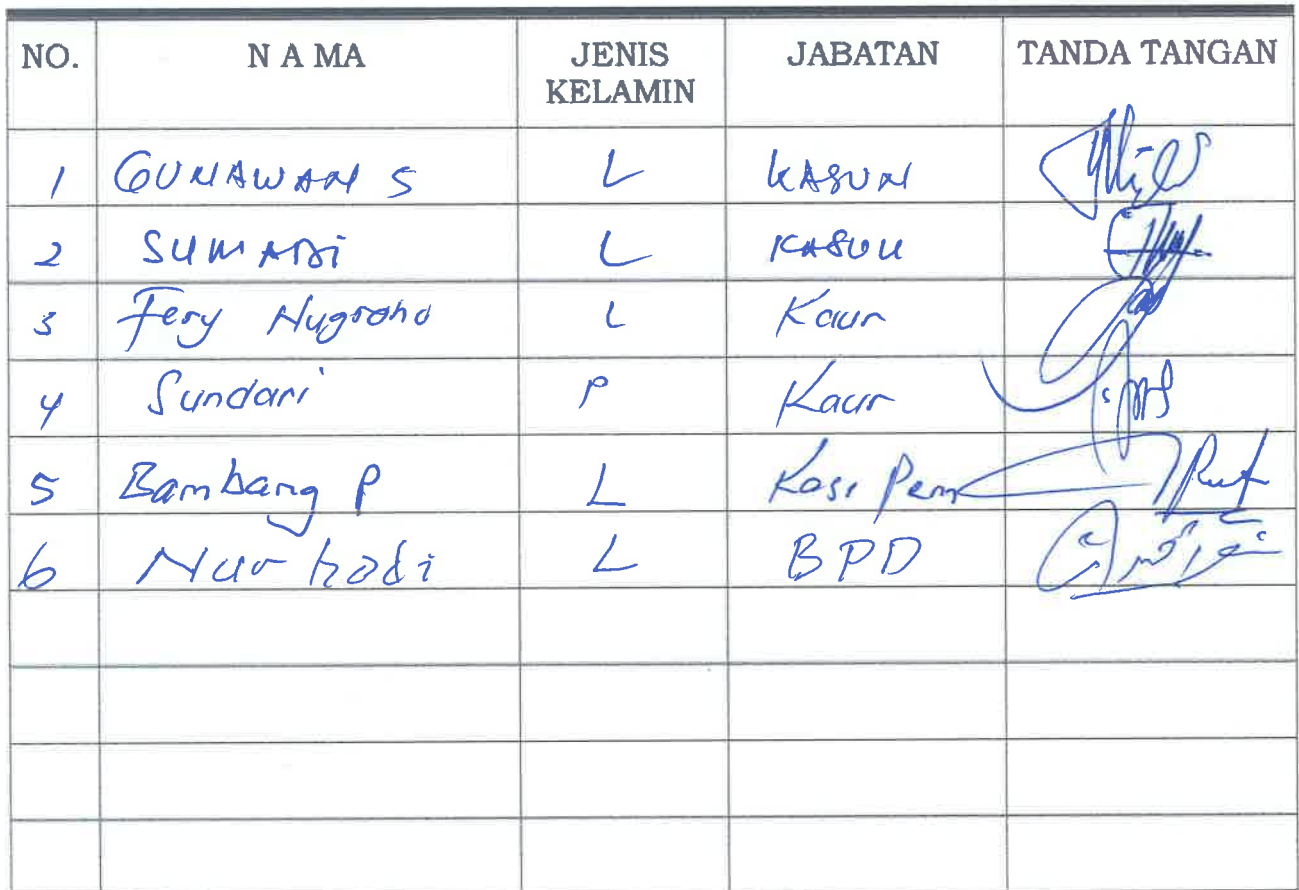 NO. N A MA JENIS KELAMIN JABATAN TANDA TANGAN
1 GUNAWAN S L KASUN
2 SUMADI L KASUN
3 Fery Nugroho L Kaur
4 Sundari P Kaur
5 Bambang P L Kasi Pem
6 Nur hadi L BPD